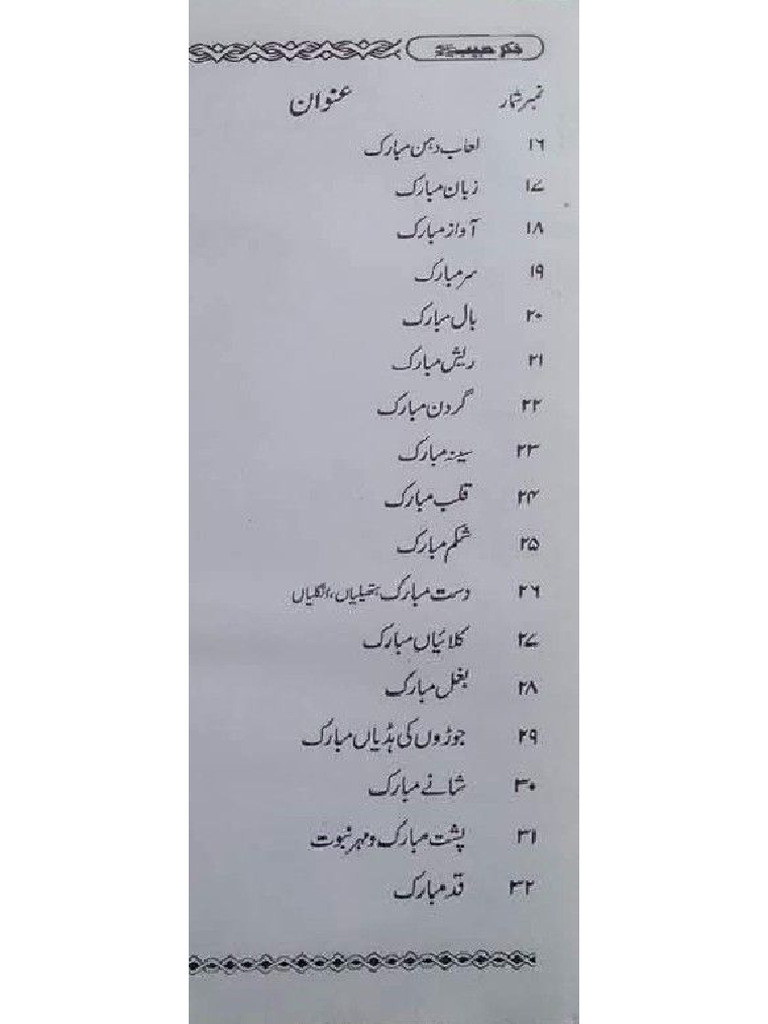 ذکر حبیب ﷺ
نمبر شمار عنوان
۱۶ لعاب دہن مبارک
۱۷ زبان مبارک
۱۸ آواز مبارک
۱۹ سر مبارک
۲۰ بال مبارک
۲۱ ریش مبارک
۲۲ گردن مبارک
۲۳ سینہ مبارک
۲۴ قلب مبارک
۲۵ شکم مبارک
۲۶ دست مبارک، ہتھیلیاں، انگلیاں
۲۷ کلائیاں مبارک
۲۸ بغل مبارک
۲۹ جوڑوں کی ہڈیاں مبارک
۳۰ شانے مبارک
۳۱ پشت مبارک و مہر نبوت
۳۲ قد مبارک